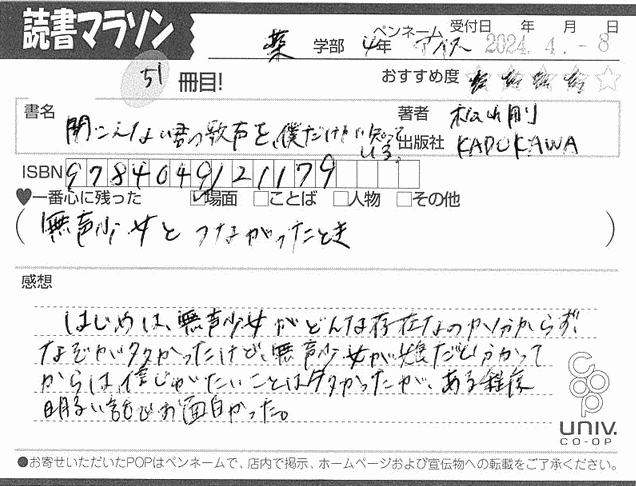 読書マラソン
薬 学部 4年 ペンネーム アバター 受付日 年 月 日
2024.4.-8
51冊目!
おすすめ度
書名 聞こえない君の歌声を、僕だけが知って
いる。
著者 松山剛
出版社 KADOKAWA
ISBN 9784049121179
♥一番心に残った ☑場面 □ことば □人物 □その他
(無声少女とつながったとき)
感想
はじめは、無声少女がどんな存在なのか分からず、
なぞが多かったけど、無声少女が だと分かって
からは信じがたいことは多かったが、ある程度
明るい話でお面白かった。
coop
UNIV.
CO-OP
●お寄せいただいたPOPはペンネームで、店内で掲示、ホームページおよび宣伝物への転載をご了承ください。